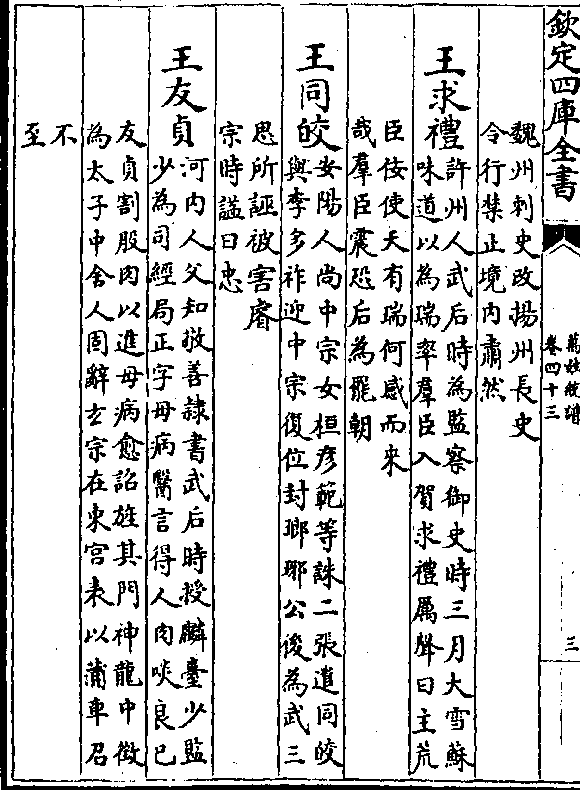 欽定四庫全書
萬姓統譜
卷四十三
三
魏州刺史改揚州長史
令行禁止境内肅然
王求禮
許州人武后時為監察御史時三月大雪蘇
味道以為瑞率羣臣入賀求禮厲聲曰主荒
臣佞使天有瑞何感而来
哉羣臣震恐后為罷朝
王同皎
安陽人尚中宗女桓彦範等誅二張遣同皎
與李多祚迎中宗復位封瑯琊公後為武三
思所誣被害睿
宗時諡曰忠
王友貞
河内人父知敬善隷書武后時授麟臺少監
少為司經局正字母病醫言得人肉啖良已
友貞割股肉以進母病愈詔旌其門神龍中徵
為太子中舍人固辭玄宗在東宮表以蒲車召
不
至